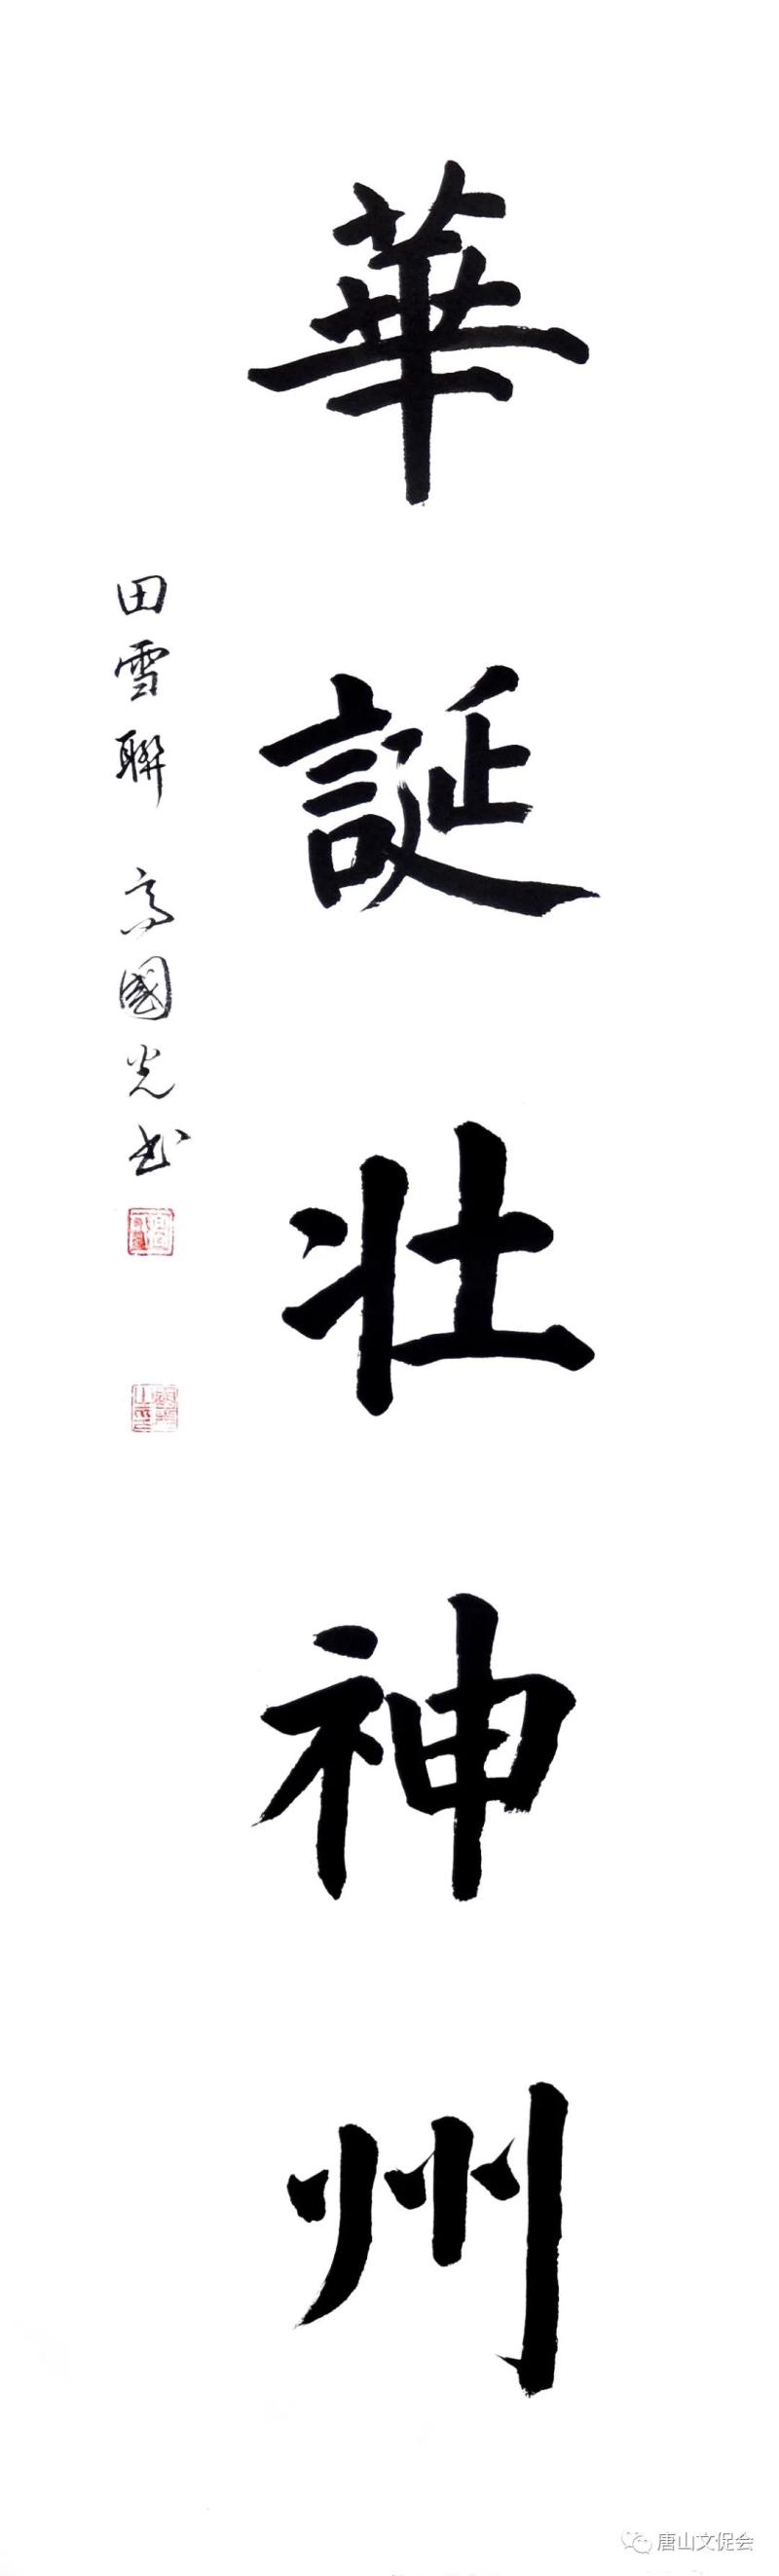 華誕壯神州
田雪聯 高國光书
唐山文促会